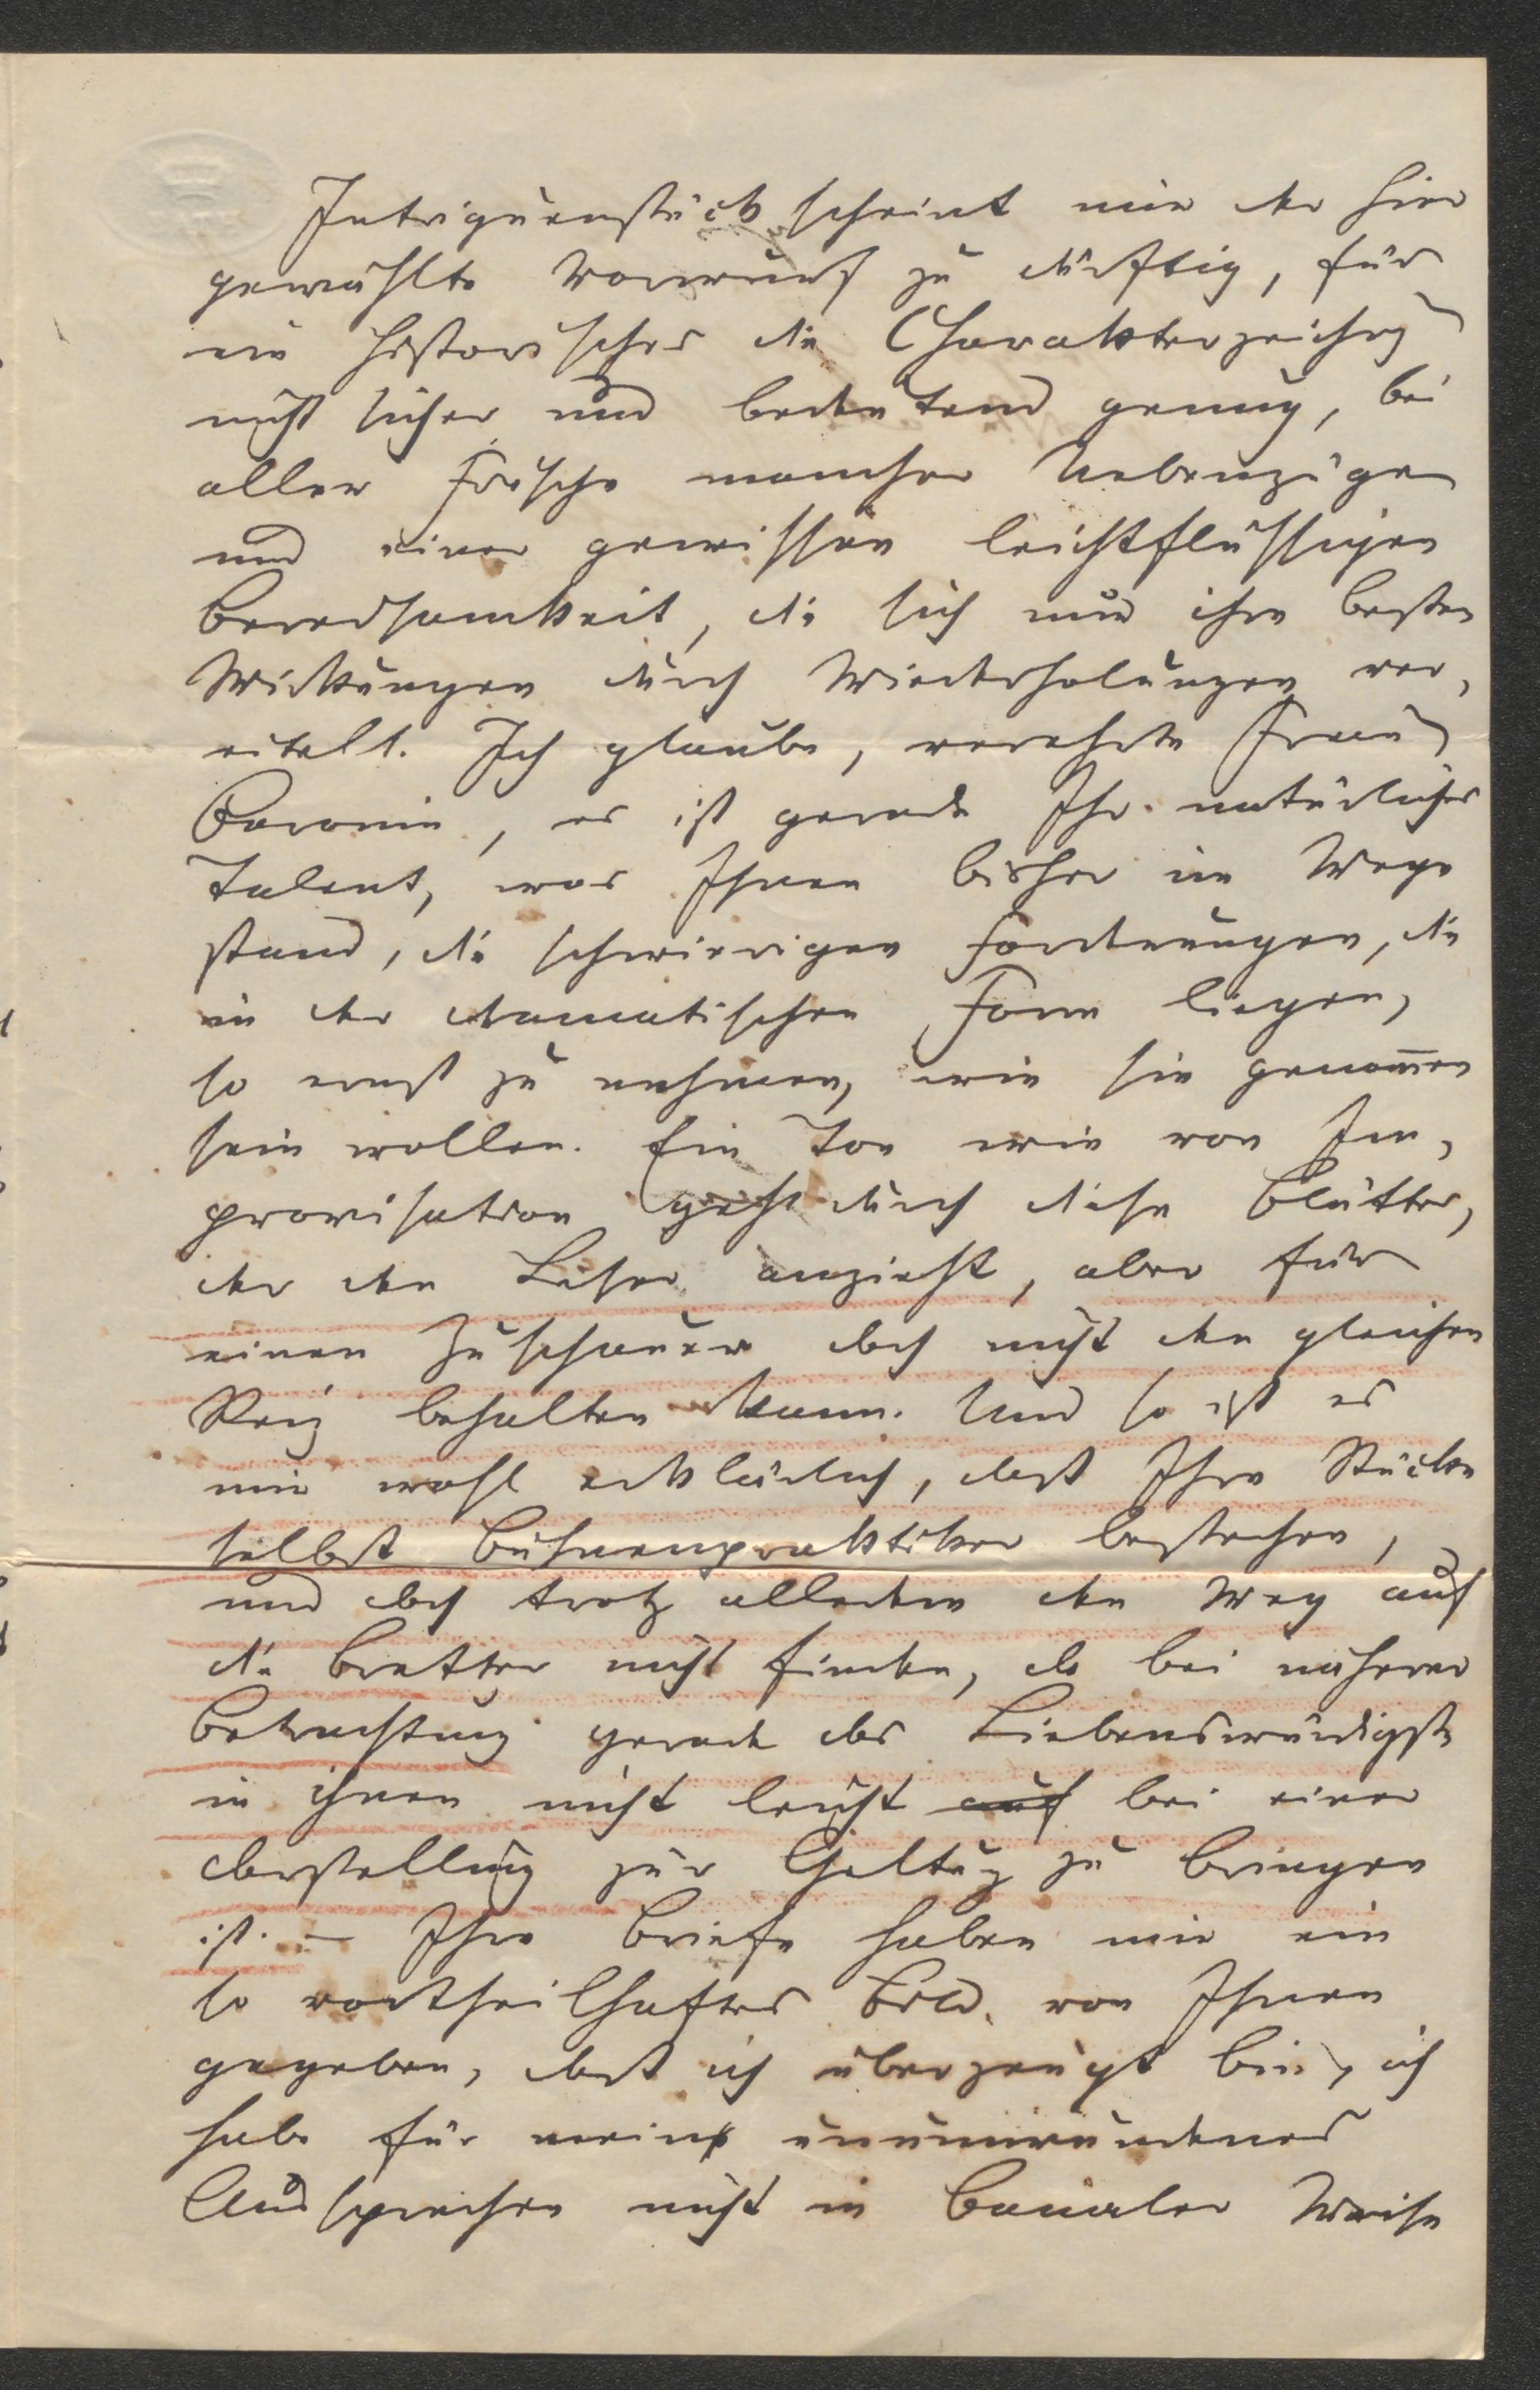 Intriguenstück scheint mir der hier
gewählte Vorwurf zu dürftig, für
ein historisches die Charakterzeichng
nicht sicher und bedeutend genug, bei
aller Frische mancher Nebenzüge
und einer gewissen leichtflüssigen
Beredsamkeit, die sich nur ihre besten
Wirkungen durch Wiederholungen ver,
eitelt. Ich glaube, verehrte Frau
Baronin, es ist gerade Ihr natürliches
Talent, was Ihnen bisher im Wege
stand, die schwierigen Forderungen, die
in der dramatischen Form liegen,
so ernst zu nehmen, wie sie genom̅en
sein wollen. Ein Ton wie von Im,
provisation geht durch diese Blätter,
der den Leser anzieht, aber für
einen Zuschauer doch nicht den gleichen
Reiz behalten kann. Und so ist es
mir wohl erklärlich, daß Ihre Stücke
selbst Bühnenpraktiker bestechen,
und doch trotz alledem den Weg auf
die Bretter nicht finden, da bei näherer
Betrachtung gerade das Liebenswürdigste
in ihnen nicht leicht auf bei einer
Darstellung zur Geltung zu bringen
ist. – Ihre Briefe haben mir ein
so vortheilhaftes Bild von Ihnen
gegeben, daß ich überzeugt bin, ich
habe für mein unumwundenes
Aussprechen nicht in banaler Weise